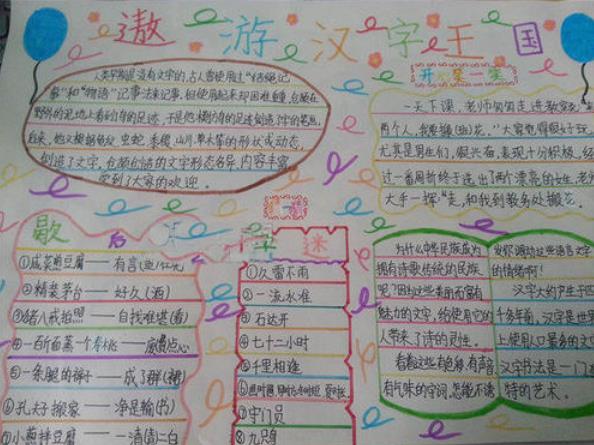 遨游汉字王国
人类早期是没有文字的,古人曾使用过"结绳记
事"和"物语"记事法来记事.但使用起来却困难重重,仓颉在
野外的泥地上看到鸟的足迹,于是他模仿鸟的足迹创造了鸟的笔画,
后来,他又根据龟纹、虫蛇、禾稷、山川、草木等的形状或动态,
创造了文字,仓颉创造的文字形态各异,内容丰富
受到了大家的欢迎。
开心笑一笑
一天下课,老师匆匆走进教室
两个人,我要搬(班)花,"大家觉得很好玩
尤其是男生们,很兴奋,表现十分积极,经
过一番周折终于选出了两个漂亮的女生,老
大手一挥:"走,和我到教务处搬花。
歇后
①咸菜煎豆腐——有言(盐)
②精装茅台——好久(酒)
③猪八戒拍照——自找难堪(看)
④一百斤面蒸一个寿桃——废费点心
⑤一条腿的裤子——成了群(裙)
⑥孔夫子搬家——净是输(书)
⑦小葱拌豆腐——一清(青)二白
字迷
①久雷不雨
②一流水准
③石达开
④七十二小时
⑤千里相逢
⑦守门员
⑧九只鸟
为什么中华民族成为
拥有诗歌传统的民族
呢?因为这些美丽而富有
魅力的文字,给使用它的
人带来了诗的灵性。
看着这些有色彩、有声音
有气味的字词,怎能不
发你调动这些语言文字
的情绪啊!
汉字大约产生于四
千多年前,汉字是世界
上使用人口最多的文
汉字书法是一门
特的艺术。